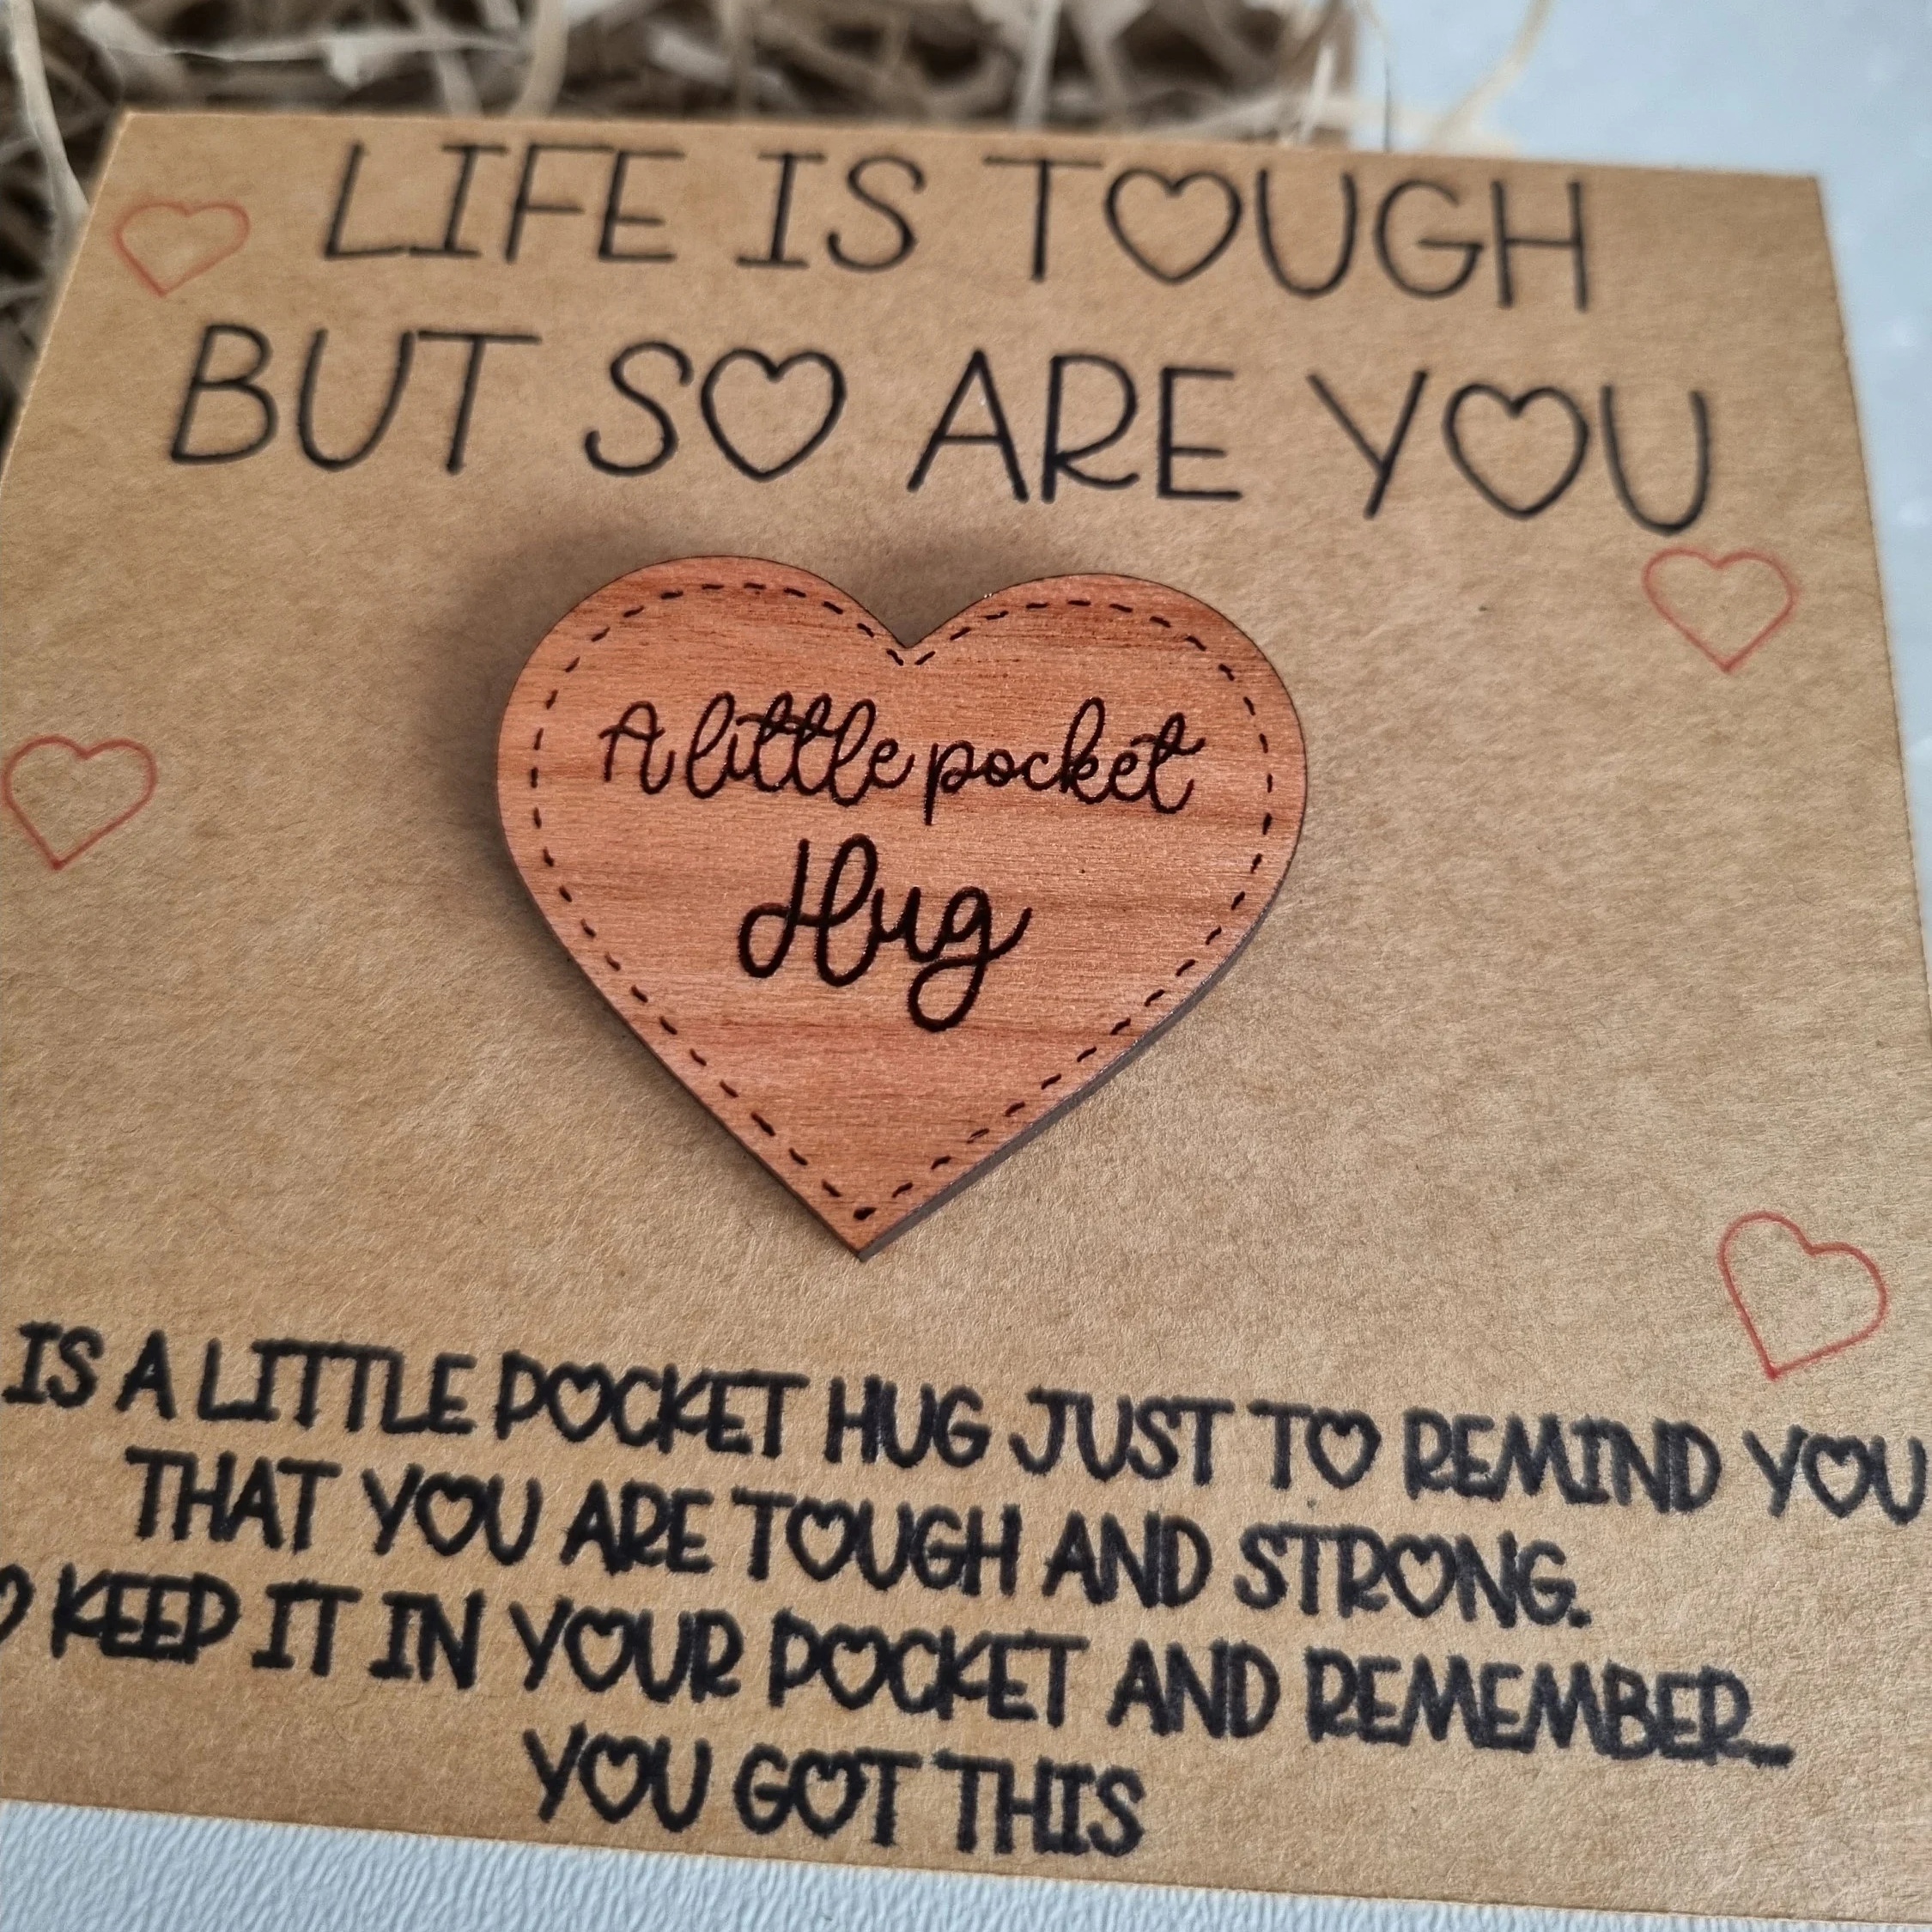 LIFE IS TOUGH
BUT SO ARE YOU
A little pocket
Hug
IS A LITTLE POCKET HUG JUST TO REMIND YOU
THAT YOU ARE TOUGH AND STRONG.
KEEP IT IN YOUR POCKET AND REMEMBER...
YOU GOT THIS